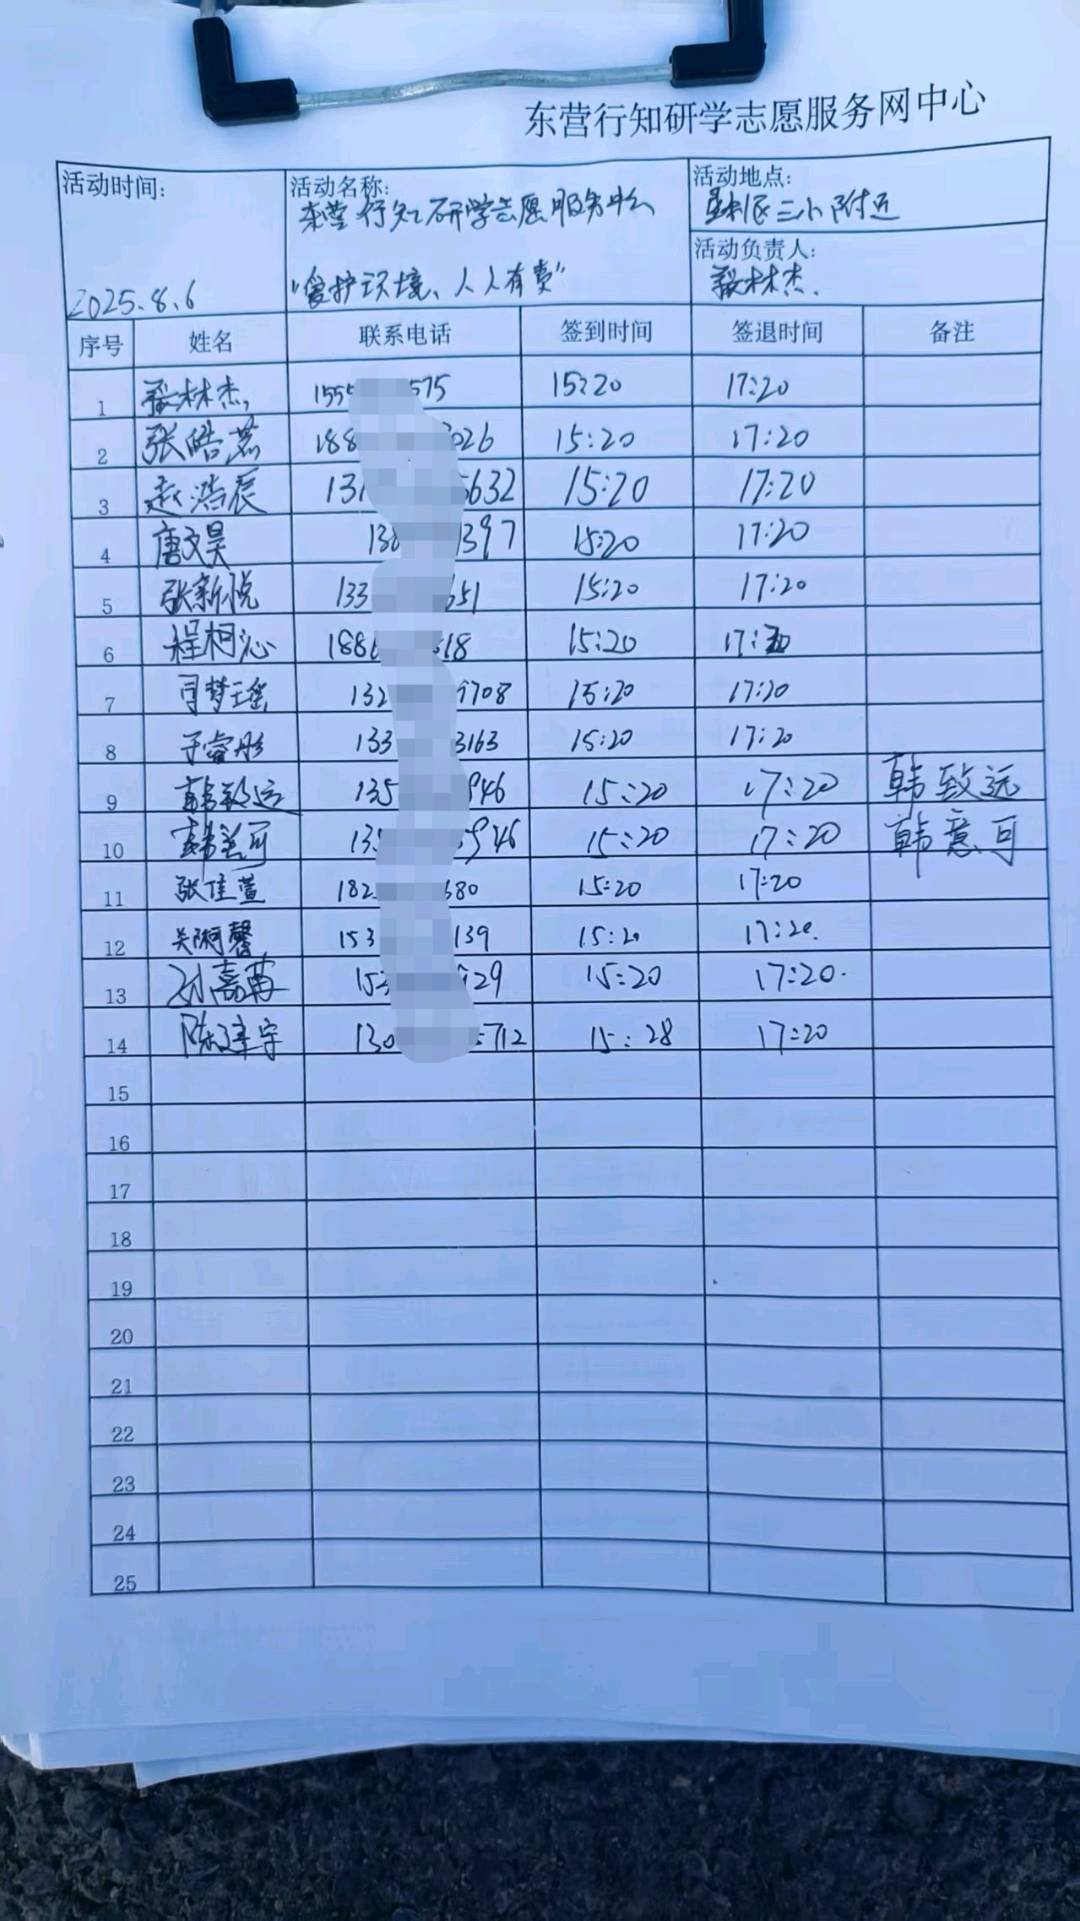 东营行知研学志愿服务网中心
活动时间: 活动名称: 活动地点:
东营行知研学志愿服务中心 三小附近
活动负责人:
2025.8.6 "爱护环境、人人有责" 林杰.
序号 姓名 联系电话 签到时间 签退时间 备注
1 林杰 155 575 15:20 17:20
2 张皓茗 188 026 15:20 17:20
3 赵浩辰 131 632 15:20 17:20
4 唐文昊 138 397 15:20 17:20
5 张新悦 133 651 15:20 17:20
6 程柯沁 188 618 15:20 17:20
7 梦瑶 132 9708 15:20 17:20
8 于睿彤 133 3163 15:20 17:20
9 韩致远 135 946 15:20 17:20 韩致远
10 韩意可 135 946 15:20 17:20 韩意可
11 张佳萱 182 680 15:20 17:20
12 关珂馨 153 139 15:20 17:20.
13 刘嘉苒 153 929 15:20 17:20.
14 陈建宇 130 712 15:28 17:20
15
16
17
18
19
20
21
22
23
24
25